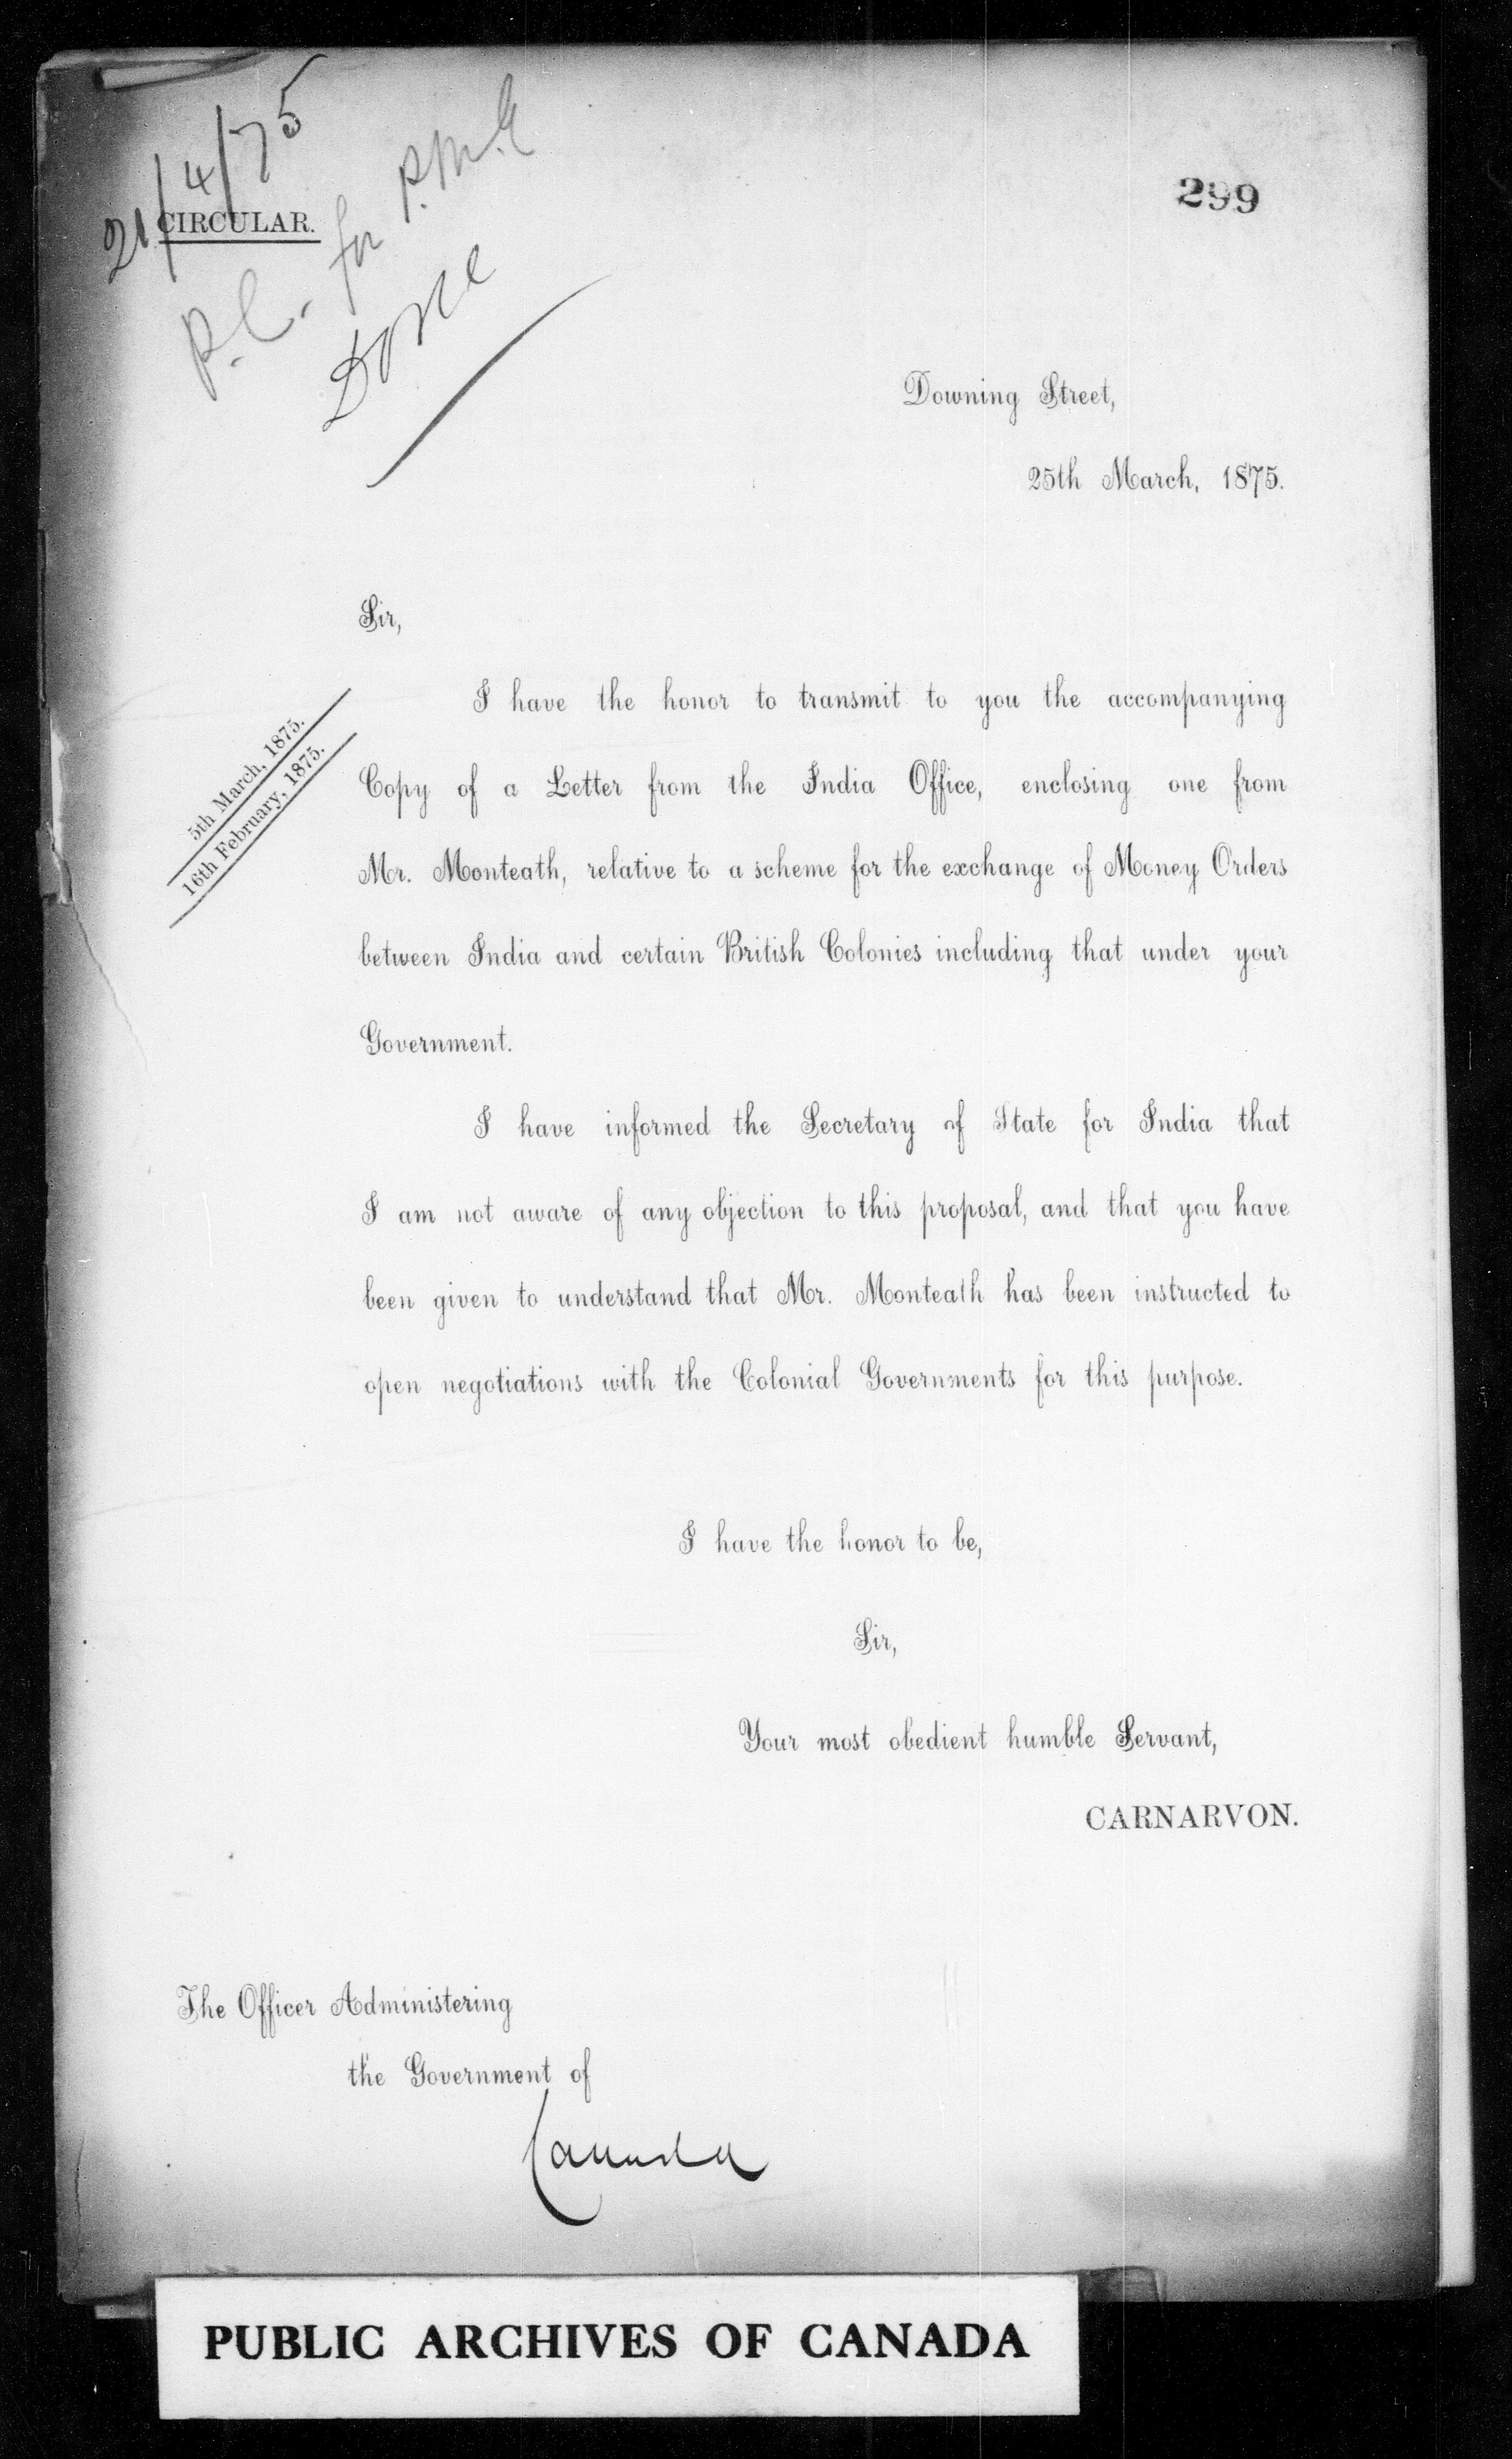 21/4/75
P.C. for P.M.G
Done
CIRCULAR.
299
Downing Street,
25th March, 1875.
Sir,
5th March, 1875.
16th February, 1875.
I have the honor to transmit to you the accompanying
Copy of a Letter from the India Office, enclosing one from
Mr. Monteath, relative to a scheme for the exchange of Money Orders
between India and certain British Colonies including that under your
Government.
I have informed the Secretary of State for India that
I am not aware of any objection to this proposal, and that you have
been given to understand that Mr. Monteath has been instructed to
open negotiations with the Colonial Governments for this purpose.
I have the honor to be,
Sir,
Your most obedient humble Servant,
CARNARVON.
The Officer Administering
the Government of
Canada
PUBLIC ARCHIVES OF CANADA